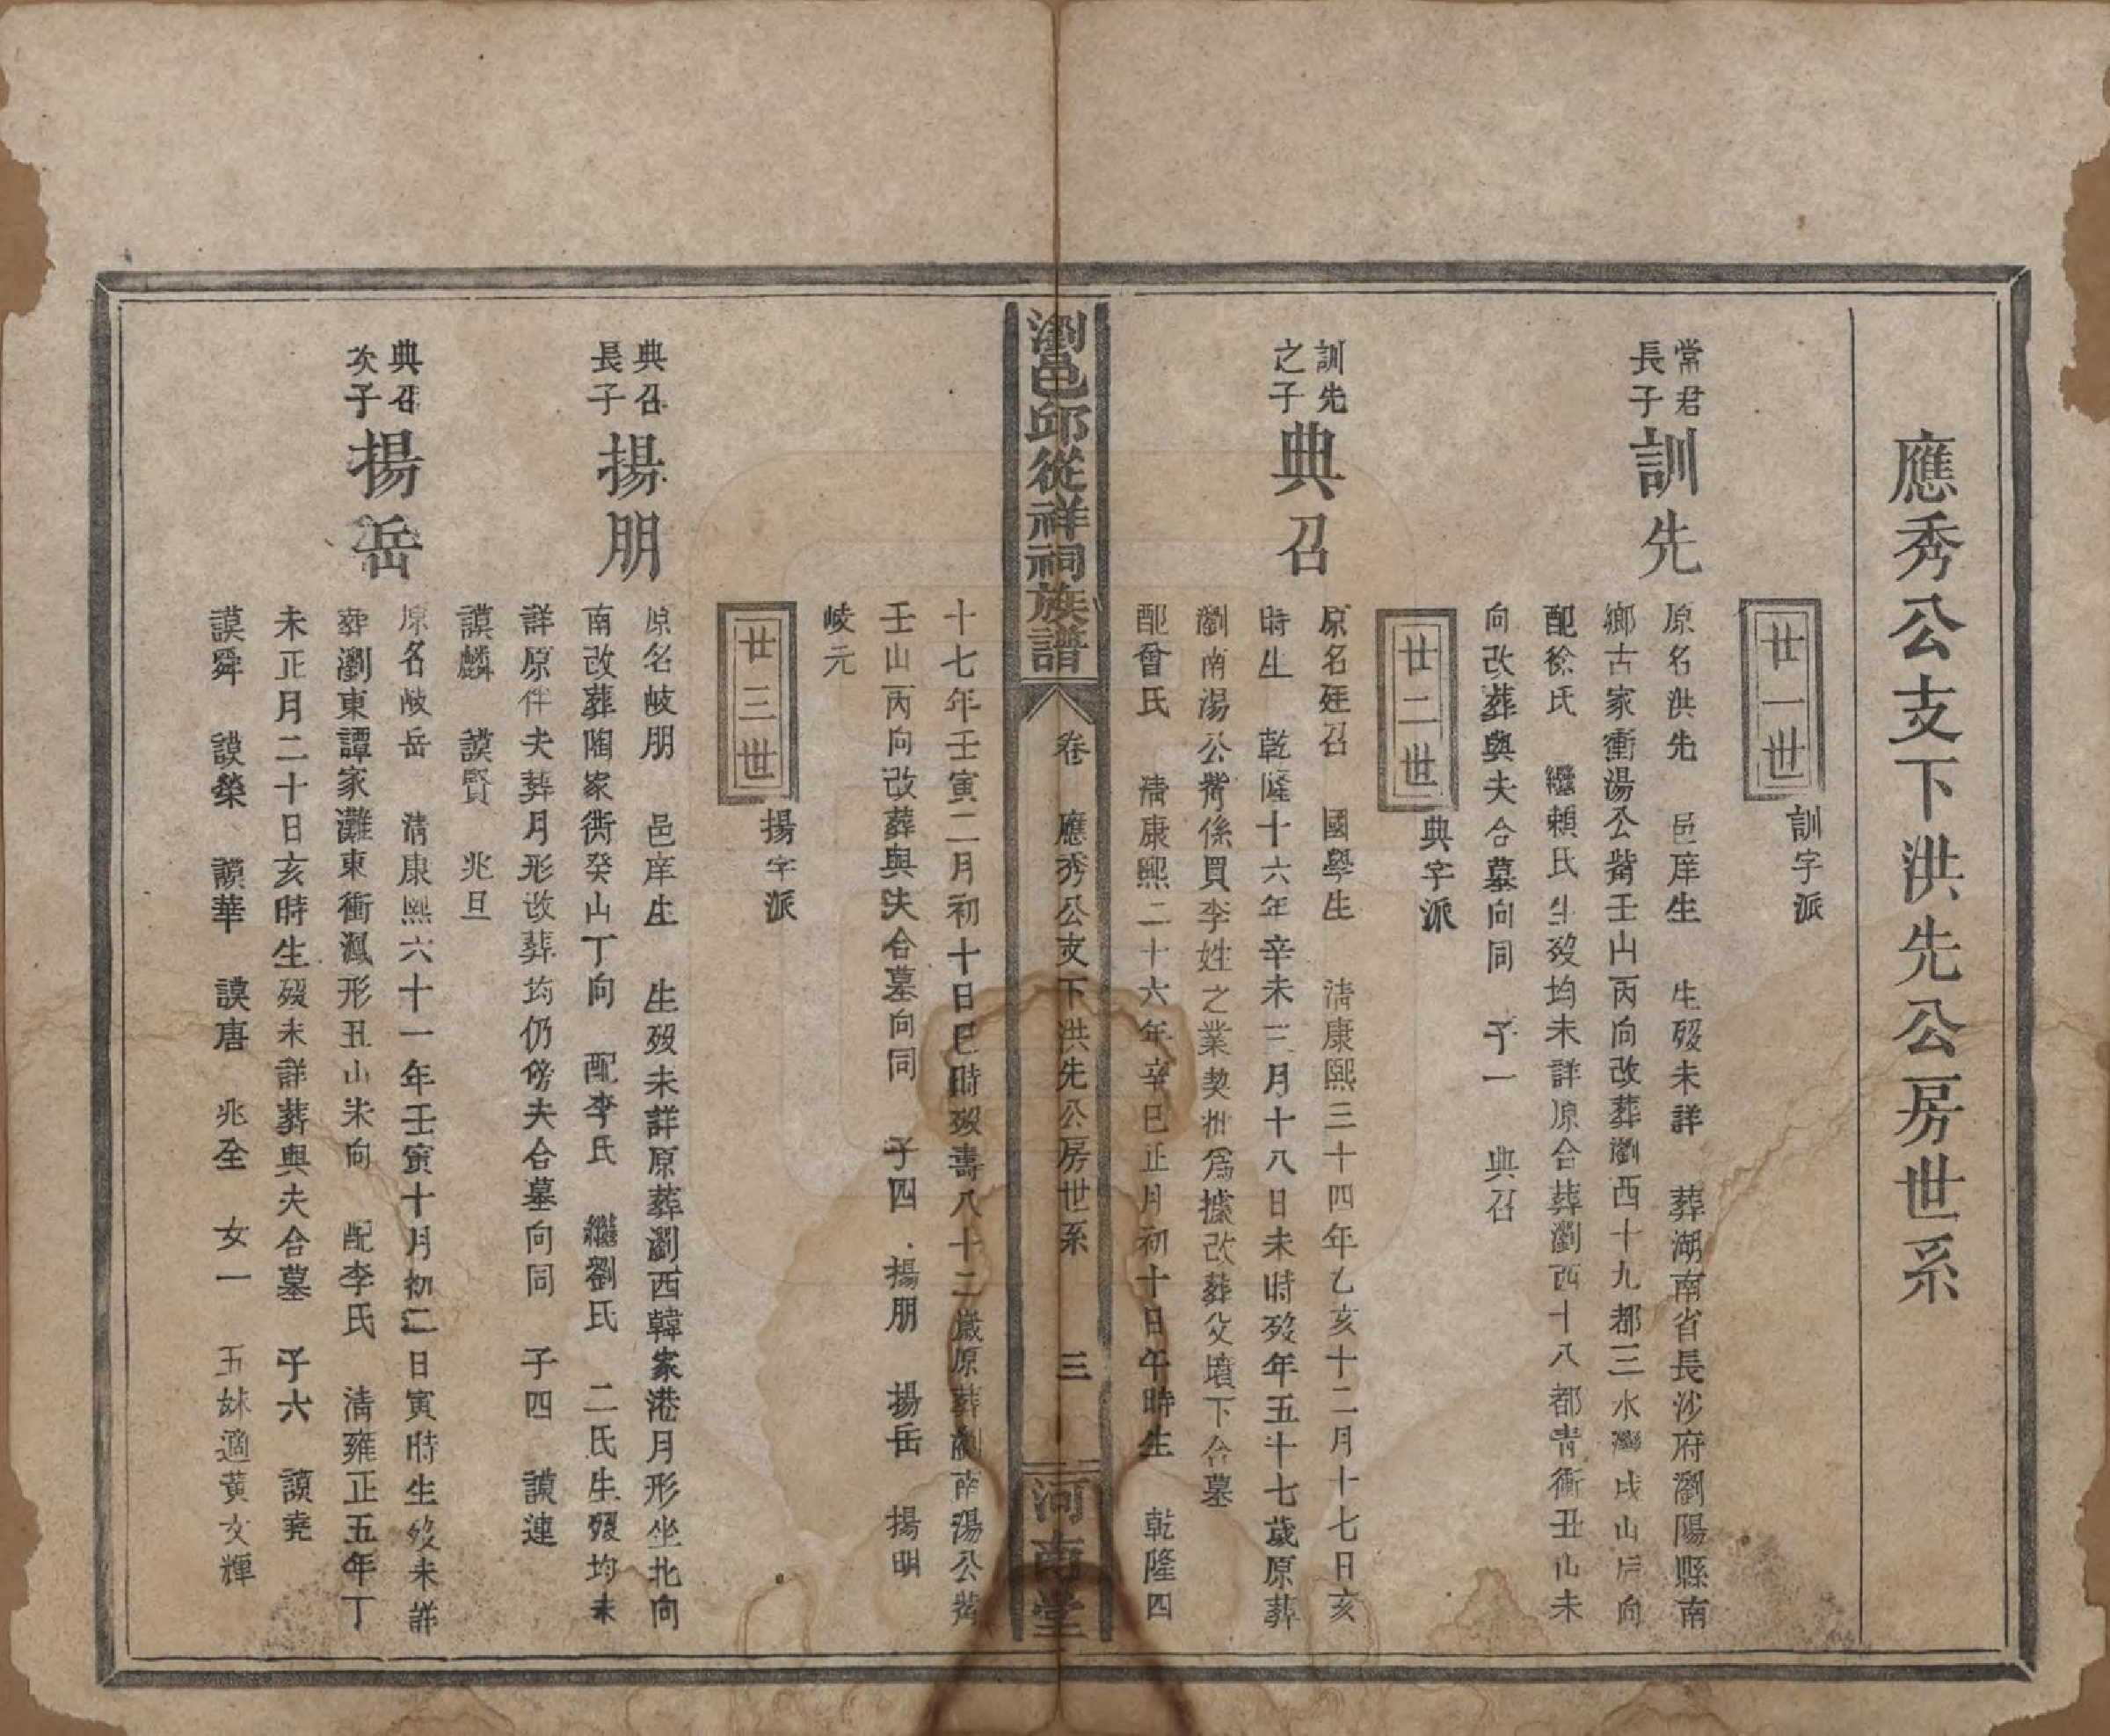 應秀公支下洪先公房世系
廿一世
訓字派
常君
長子
訓先
原名洪先　邑庠生　生歿未詳　葬湖南省長沙府瀏陽縣南
鄉古家衝湯公觜壬山丙向改葬瀏西十九都三水灣戌山辰向
配徐氏　繼賴氏生歿均未詳原合葬瀏西十八都青衝丑山未
向改葬與夫合墓向同　子一　典召
廿二世
典字派
訓先
之子
典召
原名廷召　國學生　清康熙三十四年乙亥十二月十七日亥
時生　乾隆十六年辛未三月十八日未時歿年五十七歲原葬
瀏南湯公觜係買李姓之業契批爲據改葬父墳下合墓
配曾氏　清康熙二十六年辛巳正月初十日午時生　乾隆四
瀏邑邱從祥祠族譜
卷　應秀公支下洪先公房世系　三
河南堂
十七年壬寅二月初十日巳時歿壽八十二歲原葬瀏南湯公觜
壬山丙向改葬與夫合墓向同　子四　揚朋　揚岳　揚明
崚元
廿三世
揚字派
典召
長子
揚朋
原名岐朋　邑庠生　生歿未詳原葬瀏西韓家港月形坐北向
南改葬陶家衝癸山丁向　配李氏　繼劉氏　二氏生歿均未
詳原伴夫葬月形改葬均仍傍夫合墓向同　子四　謨連
謨麟　謨賢　兆旦
典召
次子
揚岳
原名岐岳　清康熙六十一年壬寅十月初二日寅時生歿未詳
葬瀏東譚家灘東衝瓢形丑山未向　配李氏　清雍正五年丁
未正月二十日亥時生歿未詳葬與夫合墓　子六　謨堯
謨舜　謨榮　謨華　謨唐　兆全　女一　五妹適黃文輝